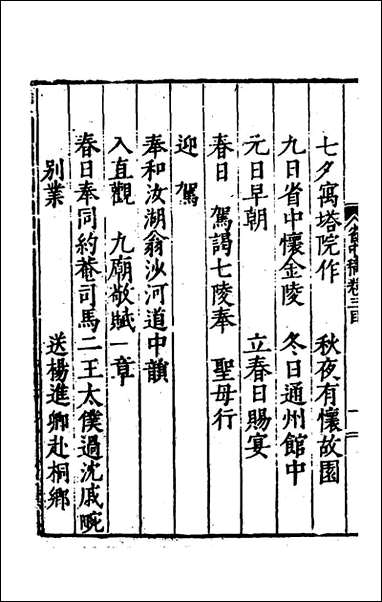 七夕寓塔院作　秋夜有懷故園
九日省中懷金陵　冬日通州館中
元日早朝　立春日賜宴
春日　駕謁七陵奉　聖母行
迎　駕
奉和汝湖翁沙河道中韻
入直觀　九廟敬賦一章
春日奉同約菴司馬二王太僕過沈戚畹
別業　送楊進卿赴桐鄉